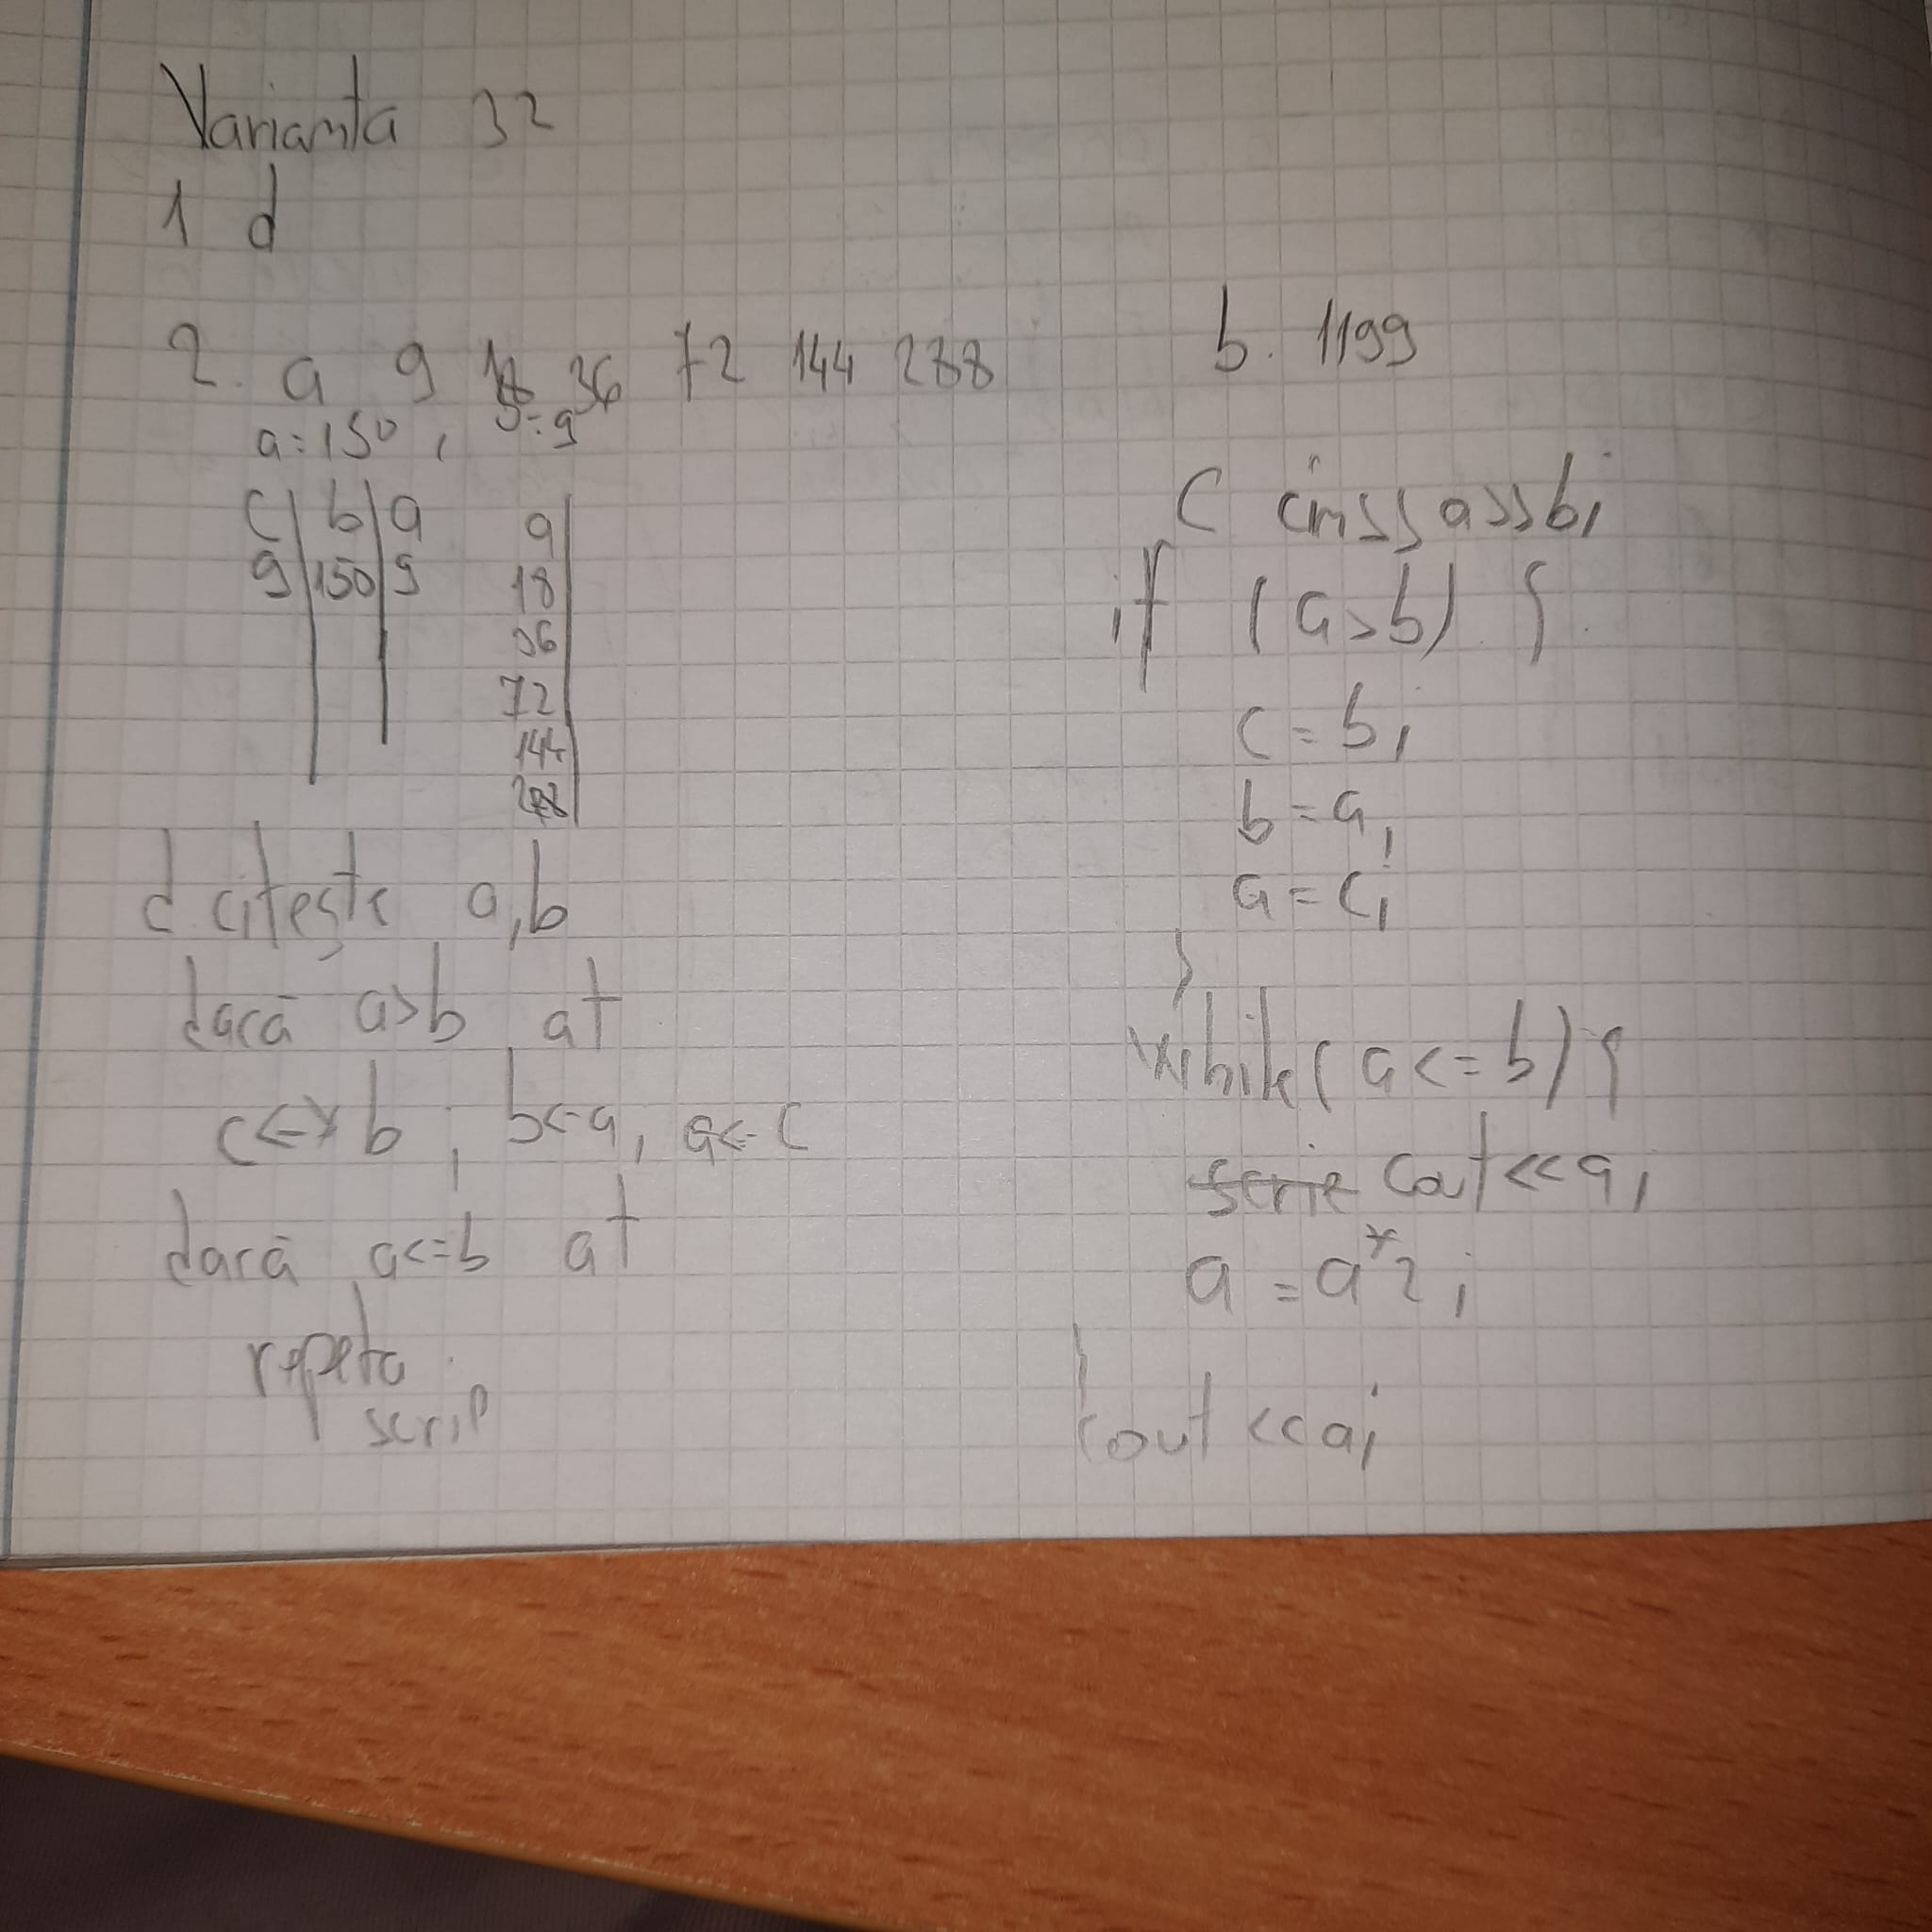 Varianta 32
1 d
2. a 9 18 36 72 144 288
a=150, b=9
c | b | a
9 | 150 | 9
9
18
36
72
144
288
d. citește a,b
dacă a>b at
c<-> b; b<-a, a<- c
dacă a<=b at
repeta
scrip
b. 1199
C cin>>a>>b;
if (a>b) {
c = b;
b = a;
a = c;
}
while (a <= b) {
scrie cout<<a;
a = a*2;
}
cout <<a;